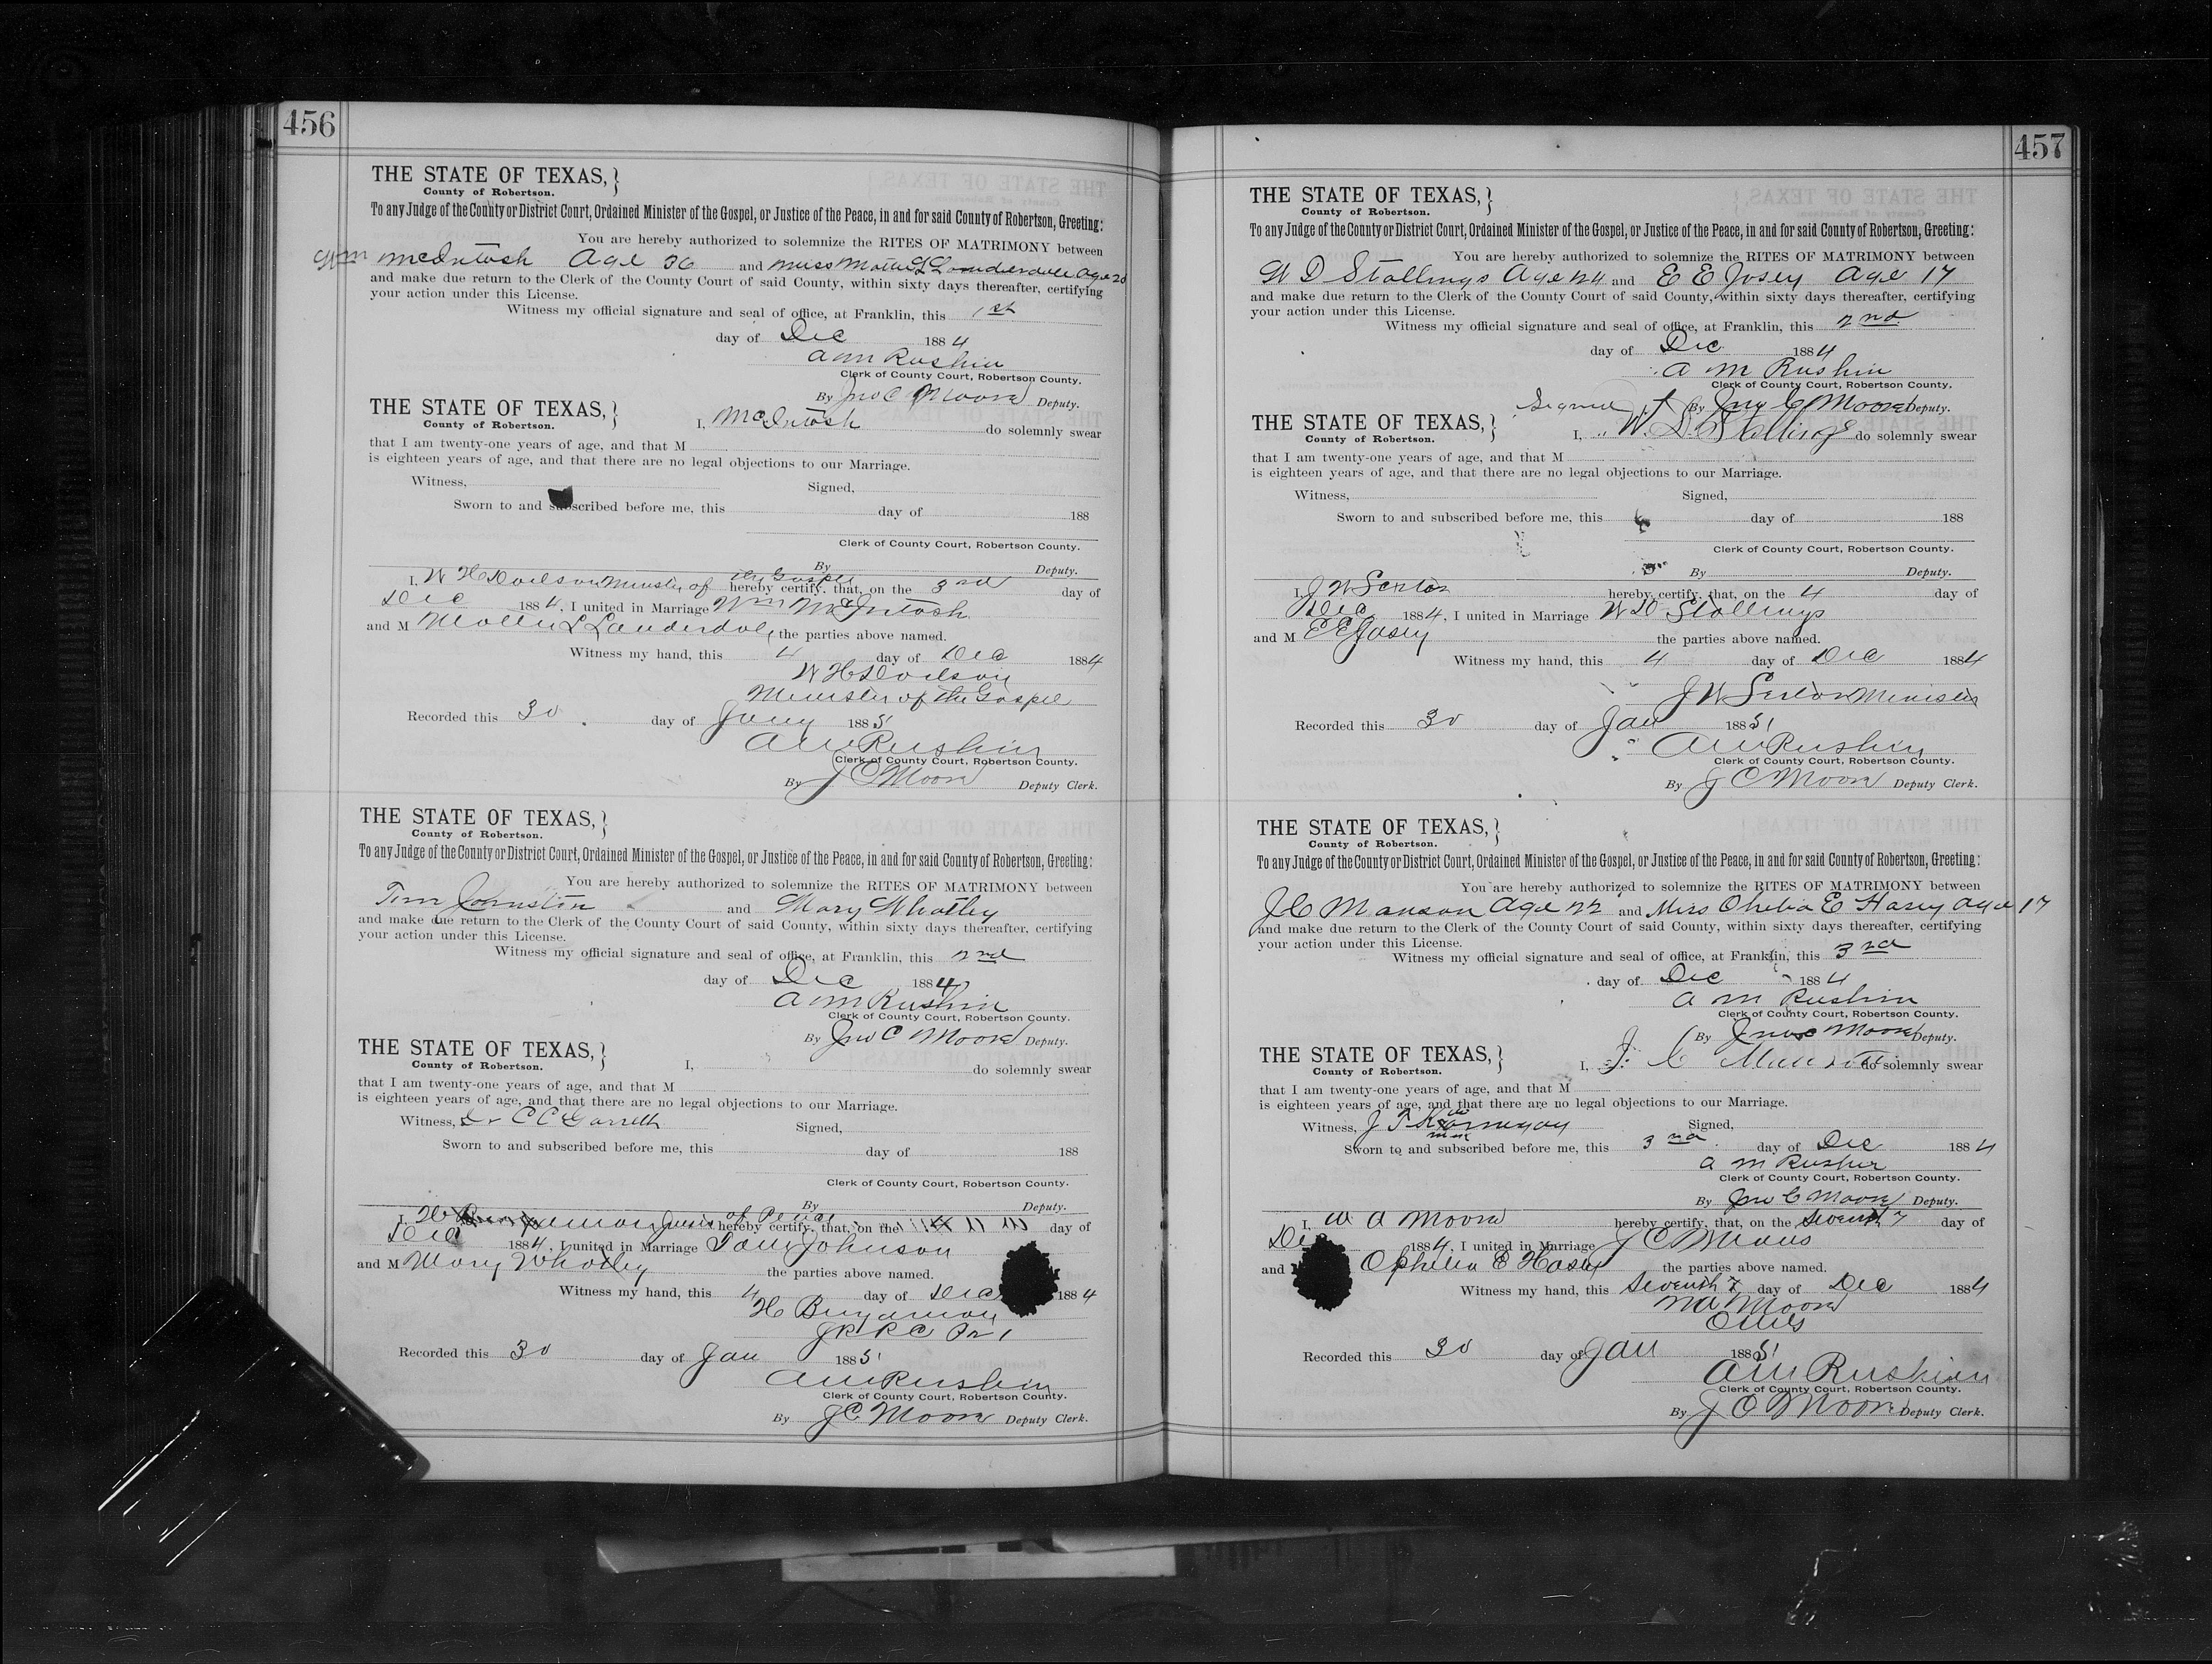 456
THE STATE OF TEXAS,
County of Robertson.
To any Judge of the County or District Court, Ordained Minister of the Gospel, or Justice of the Peace, in and for said County of Robertson, Greeting:
You are hereby authorized to solemnize the RITES OF MATRIMONY between
Wm McIntosh Age 36 and Miss Mollie L Lauderdale age 20
and make due return to the Clerk of the County Court of said County, within sixty days thereafter, certifying
your action under this License.
Witness my official signature and seal of office, at Franklin, this 1st
day of Dec 1884
A M Rushin
Clerk of County Court, Robertson County.
By Jno C Moore Deputy.
THE STATE OF TEXAS,
County of Robertson.
I, McIntosh do solemnly swear
that I am twenty-one years of age, and that M
is eighteen years of age, and that there are no legal objections to our Marriage.
Witness, Signed,
Sworn to and subscribed before me, this day of 188
Clerk of County Court, Robertson County.
By Deputy.
I, W H Minister of the Gospel hereby certify, that, on the 3rd day of
Dec 1884, I united in Marriage Wm McIntosh
and M Mollie L Lauderdale the parties above named.
Witness my hand, this 4 day of Dec 1884
W H
Minister of the Gospel
Recorded this 30 day of Jany 1885
A M Rushin
Clerk of County Court, Robertson County.
By J C Moore Deputy Clerk.
THE STATE OF TEXAS,
County of Robertson.
To any Judge of the County or District Court, Ordained Minister of the Gospel, or Justice of the Peace, in and for said County of Robertson, Greeting:
You are hereby authorized to solemnize the RITES OF MATRIMONY between
Tom Johnston and Mary Whatley
and make due return to the Clerk of the County Court of said County, within sixty days thereafter, certifying
your action under this License.
Witness my official signature and seal of office, at Franklin, this 2nd
day of Dec 1884
A M Rushin
Clerk of County Court, Robertson County.
By Jno C Moore Deputy.
THE STATE OF TEXAS,
County of Robertson.
I, do solemnly swear
that I am twenty-one years of age, and that M
is eighteen years of age, and that there are no legal objections to our Marriage.
Witness, Dr C C Garrett Signed,
Sworn to and subscribed before me, this day of 188
Clerk of County Court, Robertson County.
By Deputy.
I, H of Peace hereby certify, that, on the day of
Dec 1884, I united in Marriage Tom Johnson
and M Mary Whatley the parties above named.
Witness my hand, this 4 day of Dec 1884
H Benjamon
Recorded this 30 day of Jan 1885
A M Rushin
Clerk of County Court, Robertson County.
By J C Moore Deputy Clerk.
457
THE STATE OF TEXAS,
County of Robertson.
To any Judge of the County or District Court, Ordained Minister of the Gospel, or Justice of the Peace, in and for said County of Robertson, Greeting:
You are hereby authorized to solemnize the RITES OF MATRIMONY between
W D Stallings Age 24 and E E Josey Age 17
and make due return to the Clerk of the County Court of said County, within sixty days thereafter, certifying
your action under this License.
Witness my official signature and seal of office, at Franklin, this 2nd
day of Dec 1884
A M Rushin
Clerk of County Court, Robertson County.
Signed By Jno C Moore Deputy.
THE STATE OF TEXAS,
County of Robertson.
I, W. D. Stallings do solemnly swear
that I am twenty-one years of age, and that M
is eighteen years of age, and that there are no legal objections to our Marriage.
Witness, Signed,
Sworn to and subscribed before me, this day of 188
Clerk of County Court, Robertson County.
By Deputy.
I, J W Sexton hereby certify, that, on the 4 day of
Dec 1884, I united in Marriage W D Stallings
and M E E Josey the parties above named.
Witness my hand, this 4 day of Dec 1884
J W Sexton Minister
Recorded this 30 day of Jan 1885
A M Rushin
Clerk of County Court, Robertson County.
By J C Moore Deputy Clerk.
THE STATE OF TEXAS,
County of Robertson.
To any Judge of the County or District Court, Ordained Minister of the Gospel, or Justice of the Peace, in and for said County of Robertson, Greeting:
You are hereby authorized to solemnize the RITES OF MATRIMONY between
J C Manson Age 22 and Miss Ophelia E Hasey age 17
and make due return to the Clerk of the County Court of said County, within sixty days thereafter, certifying
your action under this License.
Witness my official signature and seal of office, at Franklin, this 3rd
day of Dec 1884
A M Rushin
Clerk of County Court, Robertson County.
By Jno C Moore Deputy.
THE STATE OF TEXAS,
County of Robertson.
I, J. C do solemnly swear
that I am twenty-one years of age, and that M
is eighteen years of age, and that there are no legal objections to our Marriage.
Witness, J T Signed,
Sworn to and subscribed before me, this 3rd day of Dec 1884
A M Rushin
Clerk of County Court, Robertson County.
By Jno C Moore Deputy.
I, W A Moore hereby certify, that, on the Seventh 7 day of
Dec 1884, I united in Marriage J C
and Ophelia E Hasey the parties above named.
Witness my hand, this Seventh 7 day of Dec 1884
W A Moore
Recorded this 30 day of Jan 1885
A M Rushin
Clerk of County Court, Robertson County.
By J C Moore Deputy Clerk.